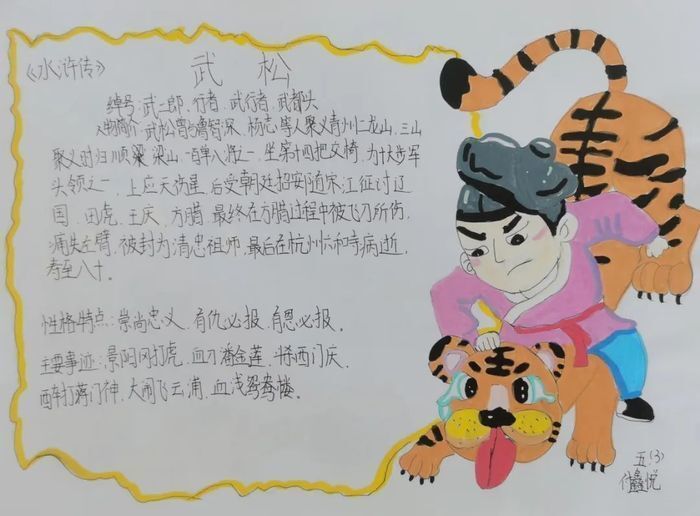 《水浒传》
武松
绰号:武二郎.行者.武行者.武都头
人物简介:武松曾与鲁智深、杨志等人聚义青州二龙山.三山
聚义时归顺梁 梁山.一百单八将之一.坐第十四把交椅.为十大步军
头领之一.上应天伤星.后受朝廷招安随宋江征讨辽
国、田虎、王庆、方腊.最终在方腊过程中被飞刀所伤,
痛失左臂.被封为清忠祖师.最后在杭州六和寺病逝,
寿至八十。
性格特点:崇尚忠义、有仇必报、有恩必报。
主要事迹:景阳冈打虎、血刃潘金莲、怒杀西门庆、
醉打蒋门神、大闹飞云浦、血浅鸳鸯楼。
五(3)
付鑫悦